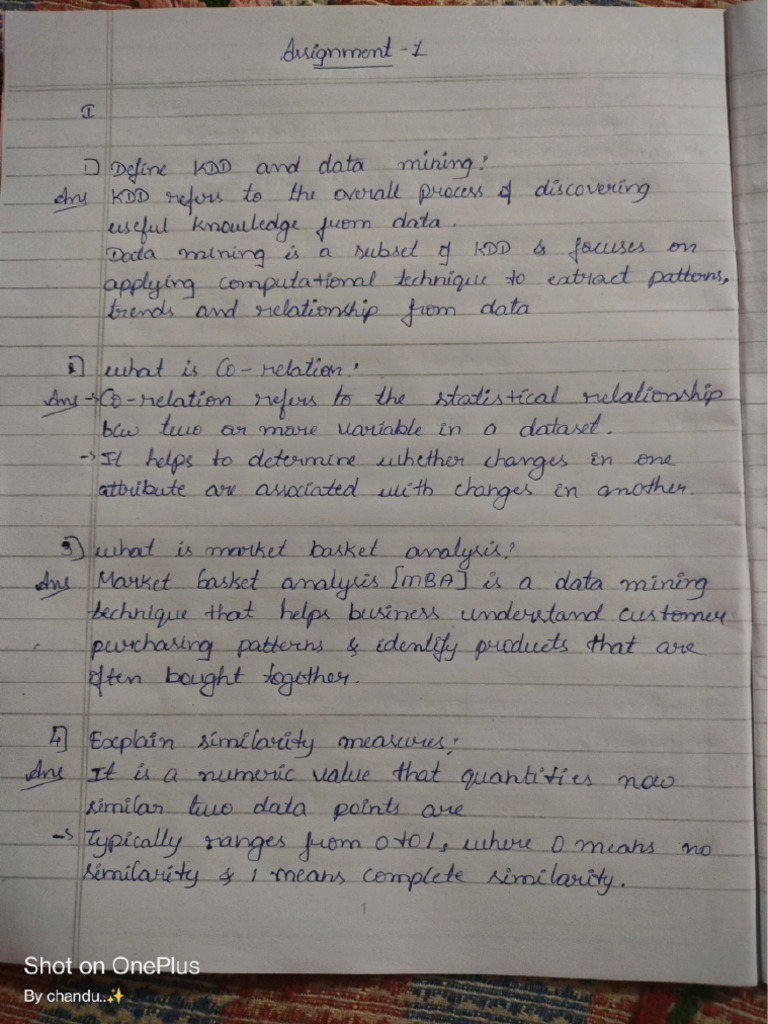 Assignment - 1
I
1) Define KDD and data mining?
Ans KDD refers to the overall process of discovering
useful knowledge from data.
Data mining is a subset of KDD & focuses on
applying computational technique to extract patterns,
trends and relationship from data
2) what is Co-relation?
Ans → Co-relation refers to the statistical relationship
b/w two or more variable in a dataset.
→ It helps to determine whether changes in one
attribute are associated with changes in another.
3) what is market basket analysis?
Ans Market basket analysis [MBA] is a data mining
technique that helps business understand customer
purchasing patterns & identify products that are
often bought together.
4) Explain similarity measures:
Ans It is a numeric value that quantifies how
similar two data points are
→ Typically ranges from 0 to 1, where 0 means no
similarity & 1 means complete similarity.
1
Shot on OnePlus
By chandu..✨